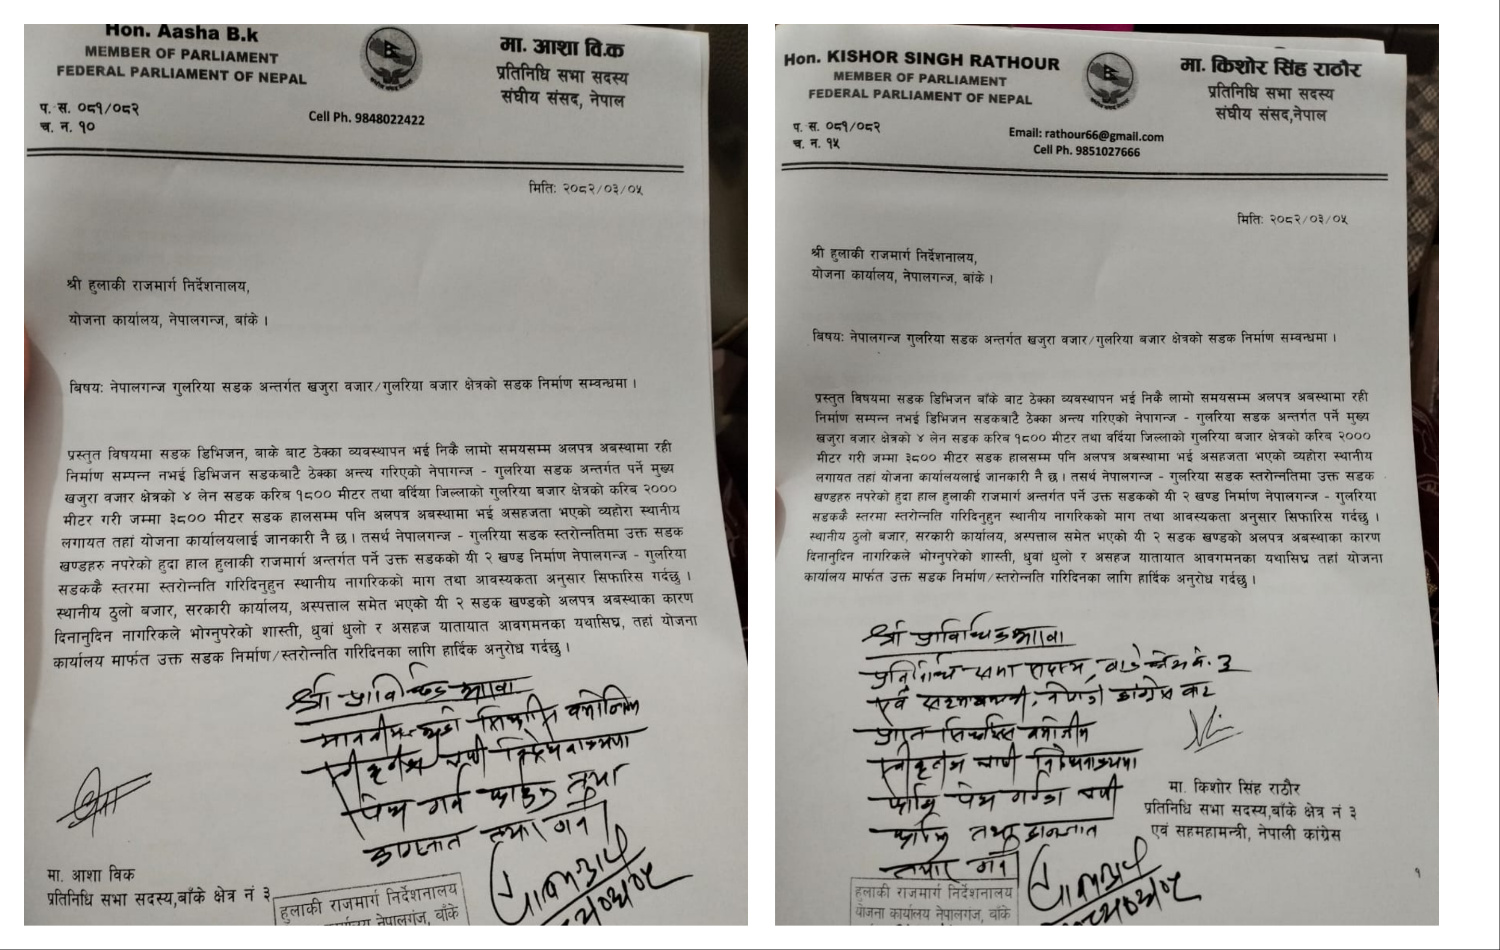 Hon. Aasha B.k
MEMBER OF PARLIAMENT
FEDERAL PARLIAMENT OF NEPAL
मा. आशा वि.क
प्रतिनिधि सभा सदस्य
संघीय संसद, नेपाल
प. स. ०८१/०८२
च. न. १०
Cell Ph. 9848022422
मितिः २०८२/०३/०५
श्री हुलाकी राजमार्ग निर्देशनालय,
योजना कार्यालय, नेपालगन्ज, बांके ।
बिषयः नेपालगन्ज गुलरिया सडक अन्तर्गत खजुरा वजार/गुलरिया बजार क्षेत्रको सडक निर्माण सम्वन्धमा ।
प्रस्तुत विषयमा सडक डिभिजन, बाके बाट ठेक्का व्यवस्थापन भई निकै लामो समयसम्म अलपत्र अबस्थामा रही
निर्माण सम्पन्न नभई डिभिजन सडकबाटै ठेक्का अन्त्य गरिएको नेपागन्ज - गुलरिया सडक अन्तर्गत पर्ने मुख्य
खजुरा वजार क्षेत्रको ४ लेन सडक करिब १८०० मीटर तथा वर्दिया जिल्लाको गुलरिया बजार क्षेत्रको करिब २०००
मीटर गरी जम्मा ३८०० मीटर सडक हालसम्म पनि अलपत्र अबस्थामा भई असहजता भएको व्यहोरा स्थानीय
लगायत तहां योजना कार्यालयलाई जानकारी नै छ । तसर्थ नेपालगन्ज - गुलरिया सडक स्तरोन्नतिमा उक्त सडक
खण्डहरु नपरेको हुदा हाल हुलाकी राजमार्ग अन्तर्गत पर्ने उक्त सडकको यी २ खण्ड निर्माण नेपालगन्ज - गुलरिया
सडककै स्तरमा स्तरोन्नति गरिदिनुहुन स्थानीय नागरिकको माग तथा आवस्यकता अनुसार सिफारिस गर्दछु ।
स्थानीय ठुलो बजार, सरकारी कार्यालय, अस्पत्ताल समेत भएको यी २ सडक खण्डको अलपत्र अबस्थाका कारण
दिनानुदिन नागरिकले भोग्नुपरेको शास्ती, धुवां धुलो र असहज यातायात आवगमनका यथासिघ्र, तहां योजना
कार्यालय मार्फत उक्त सडक निर्माण/स्तरोन्नति गरिदिनका लागि हार्दिक अनुरोध गर्दछु ।
मा. आशा विक
प्रतिनिधि सभा सदस्य,बाँके क्षेत्र नं ३
हुलाकी राजमार्ग निर्देशनालय
योजना कार्यालय नेपालगंज, बाँके
Hon. KISHOR SINGH RATHOUR
MEMBER OF PARLIAMENT
FEDERAL PARLIAMENT OF NEPAL
मा. किशोर सिंह राठौर
प्रतिनिधि सभा सदस्य
संघीय संसद,नेपाल
प. स. ०८१/०८२
च. न. १५
Email: rathour66@gmail.com
Cell Ph. 9851027666
मितिः २०८२/०३/०५
श्री हुलाकी राजमार्ग निर्देशनालय,
योजना कार्यालय, नेपालगन्ज, बांके ।
बिषयः नेपालगन्ज गुलरिया सडक अन्तर्गत खजुरा वजार/गुलरिया बजार क्षेत्रको सडक निर्माण सम्वन्धमा ।
प्रस्तुत विषयमा सडक डिभिजन बाँके बाट ठेक्का व्यवस्थापन भई निकै लामो समयसम्म अलपत्र अबस्थामा रही
निर्माण सम्पन्न नभई डिभिजन सडकबाटै ठेक्का अन्त्य गरिएको नेपागन्ज - गुलरिया सडक अन्तर्गत पर्ने मुख्य
खजुरा वजार क्षेत्रको ४ लेन सडक करिब १८०० मीटर तथा वर्दिया जिल्लाको गुलरिया बजार क्षेत्रको करिब २०००
मीटर गरी जम्मा ३८०० मीटर सडक हालसम्म पनि अलपत्र अबस्थामा भई असहजता भएको व्यहोरा स्थानीय
लगायत तहां योजना कार्यालयलाई जानकारी नै छ । तसर्थ नेपालगन्ज - गुलरिया सडक स्तरोन्नतिमा उक्त सडक
खण्डहरु नपरेको हुदा हाल हुलाकी राजमार्ग अन्तर्गत पर्ने उक्त सडकको यी २ खण्ड निर्माण नेपालगन्ज - गुलरिया
सडककै स्तरमा स्तरोन्नति गरिदिनुहुन स्थानीय नागरिकको माग तथा आवस्यकता अनुसार सिफारिस गर्दछु ।
स्थानीय ठुलो बजार, सरकारी कार्यालय, अस्पत्ताल समेत भएको यी २ सडक खण्डको अलपत्र अबस्थाका कारण
दिनानुदिन नागरिकले भोग्नुपरेको शास्ती, धुवां धुलो र असहज यातायात आवगमनका यथासिघ्र तहां योजना
कार्यालय मार्फत उक्त सडक निर्माण/स्तरोन्नति गरिदिनका लागि हार्दिक अनुरोध गर्दछु ।
मा. किशोर सिंह राठौर
प्रतिनिधि सभा सदस्य,बाँके क्षेत्र नं ३
एवं सहमहामन्त्री, नेपाली कांग्रेस
१
हुलाकी राजमार्ग निर्देशनालय
योजना कार्यालय नेपालगंज, बाँके